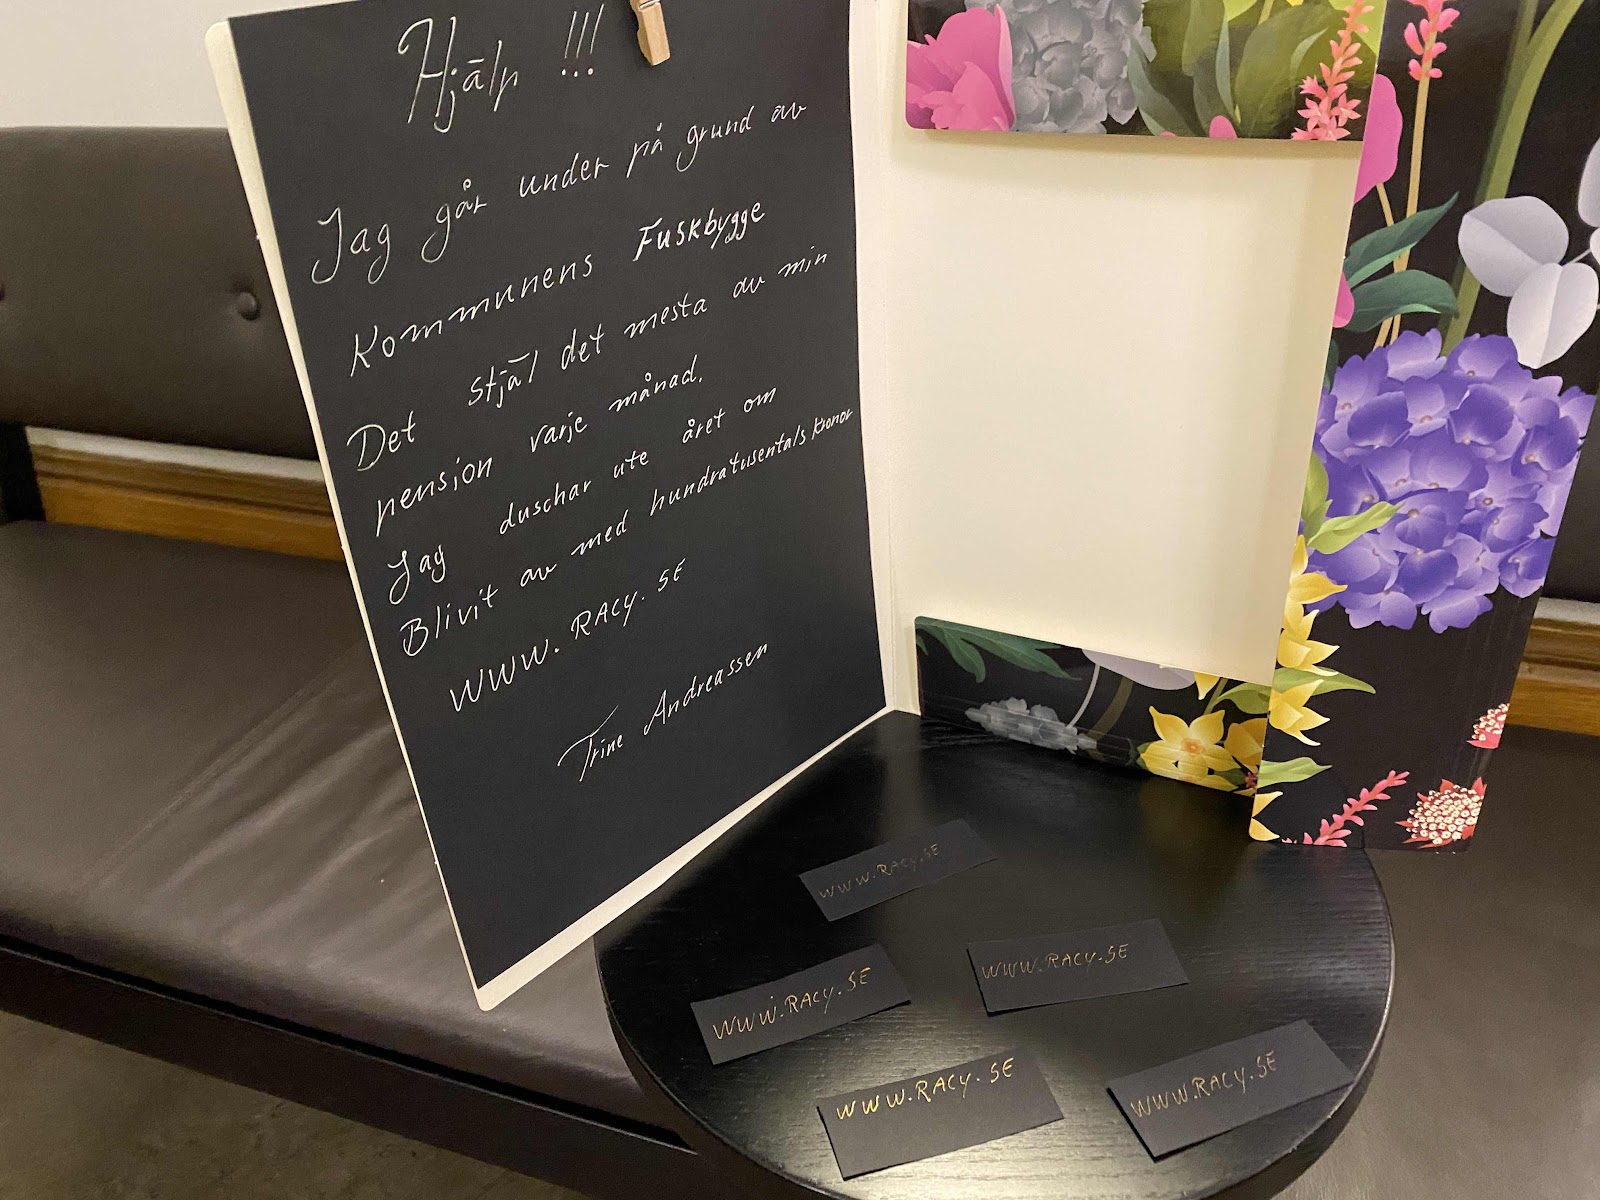 Hjälp !!!
Jag går under på grund av
Kommunens Fuskbygge
Det stjäl det mesta av min
pension varje månad.
Jag duschar ute året om
Blivit av med hundratusentals kronor
WWW.RACY.SE
Trine Andreassen
WWW.RACY.SE
WWW.RACY.SE
WWW.RACY.SE
WWW.RACY.SE
WWW.RACY.SE